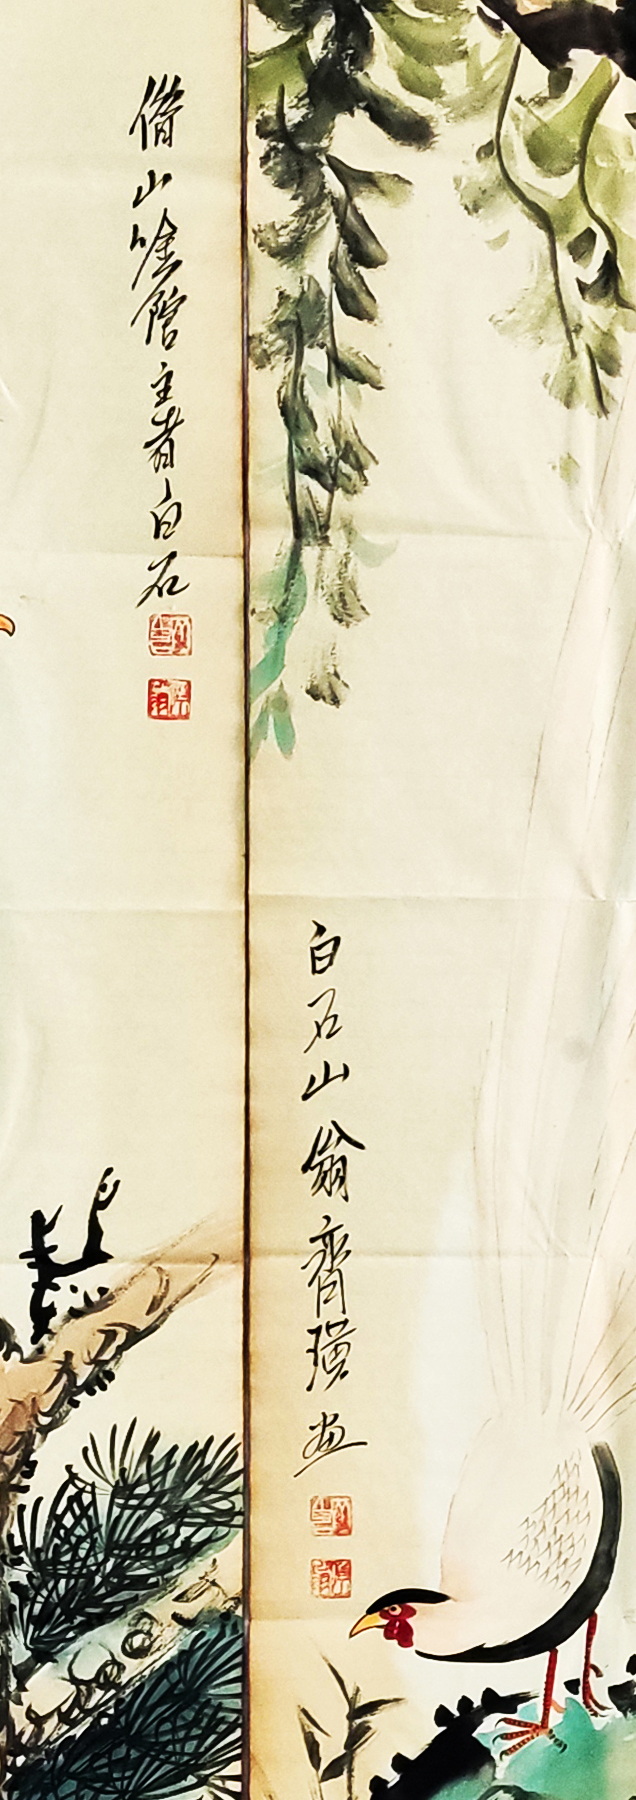 白石山翁齊璜画
借山吟館主者白石